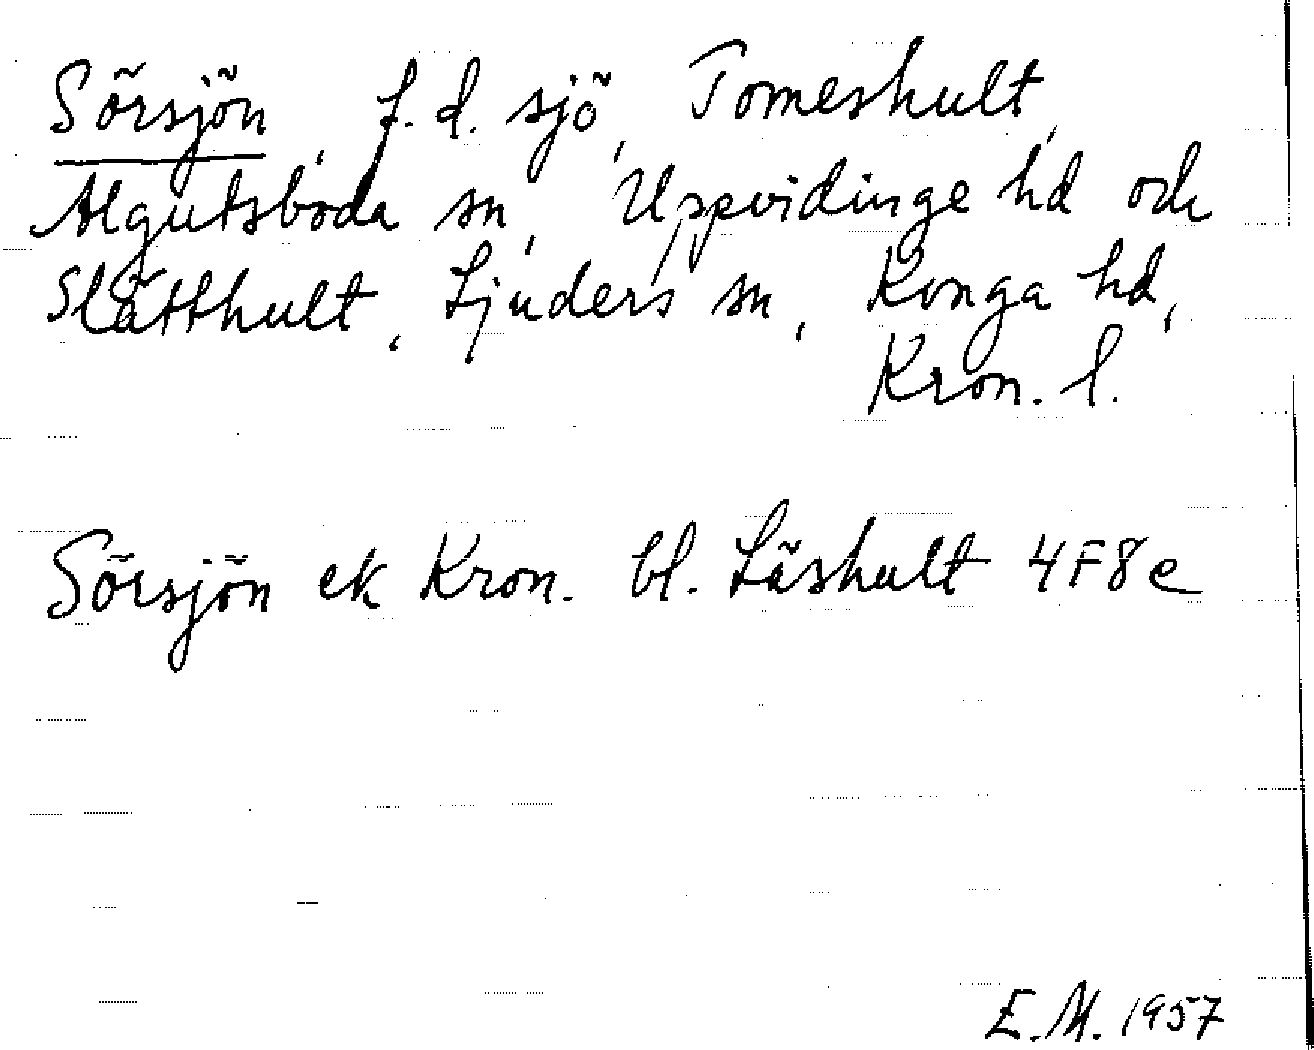 Sörsjön, f.d. sjö, Tomeshult,
Algutsboda sn, Uppvidinge hd och
Slätthult, Ljuders sn, Konga hd,
Kron. l.
Sörsjön ek Kron. bl. Läshult 4F8e
E.M. 1957